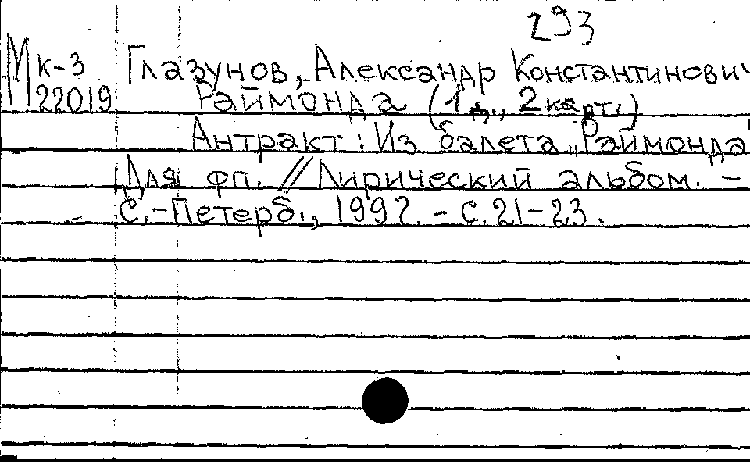 293
Мк-3 Глазунов, Александр Константинович
22019 Раймонда (1 д., 2 карт.)
Антракт: Из балета „Раймонда"
Для фп. // Лирический альбом. –
С.-Петерб., 1992. – С. 21-23.